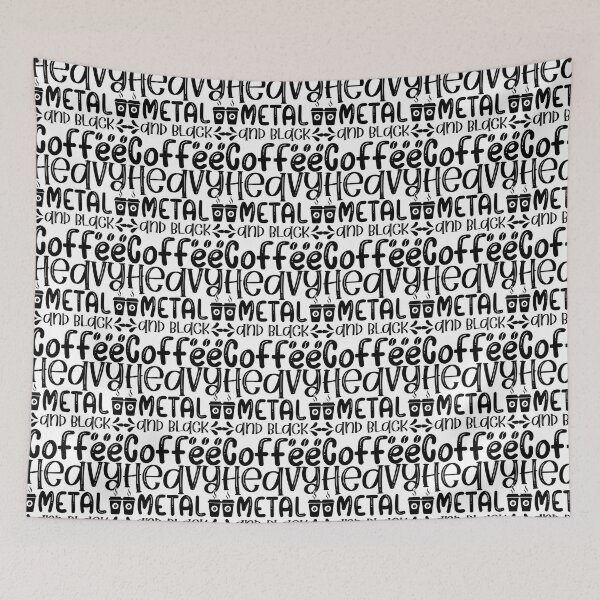 Heavy Heavy Heavy Heavy Heavy Hea
METAL METAL METAL METAL METAL MET
and BLACK and BLACK and BLACK and BLACK and BLACK and B
Coffee Coffee Coffee Coffee Coffee Cof
Heavy Heavy Heavy Heavy Heavy Hea
METAL METAL METAL METAL METAL MET
and BLACK and BLACK and BLACK and BLACK and BLACK and B
Coffee Coffee Coffee Coffee Coffee Cof
Heavy Heavy Heavy Heavy Heavy Hea
METAL METAL METAL METAL METAL MET
and BLACK and BLACK and BLACK and BLACK and BLACK and B
Coffee Coffee Coffee Coffee Coffee Cof
Heavy Heavy Heavy Heavy Heavy Hea
METAL METAL METAL METAL METAL MET
and BLACK and BLACK and BLACK and BLACK and BLACK and B
Coffee Coffee Coffee Coffee Coffee Cof
Heavy Heavy Heavy Heavy Heavy Hea
METAL METAL METAL METAL METAL MET